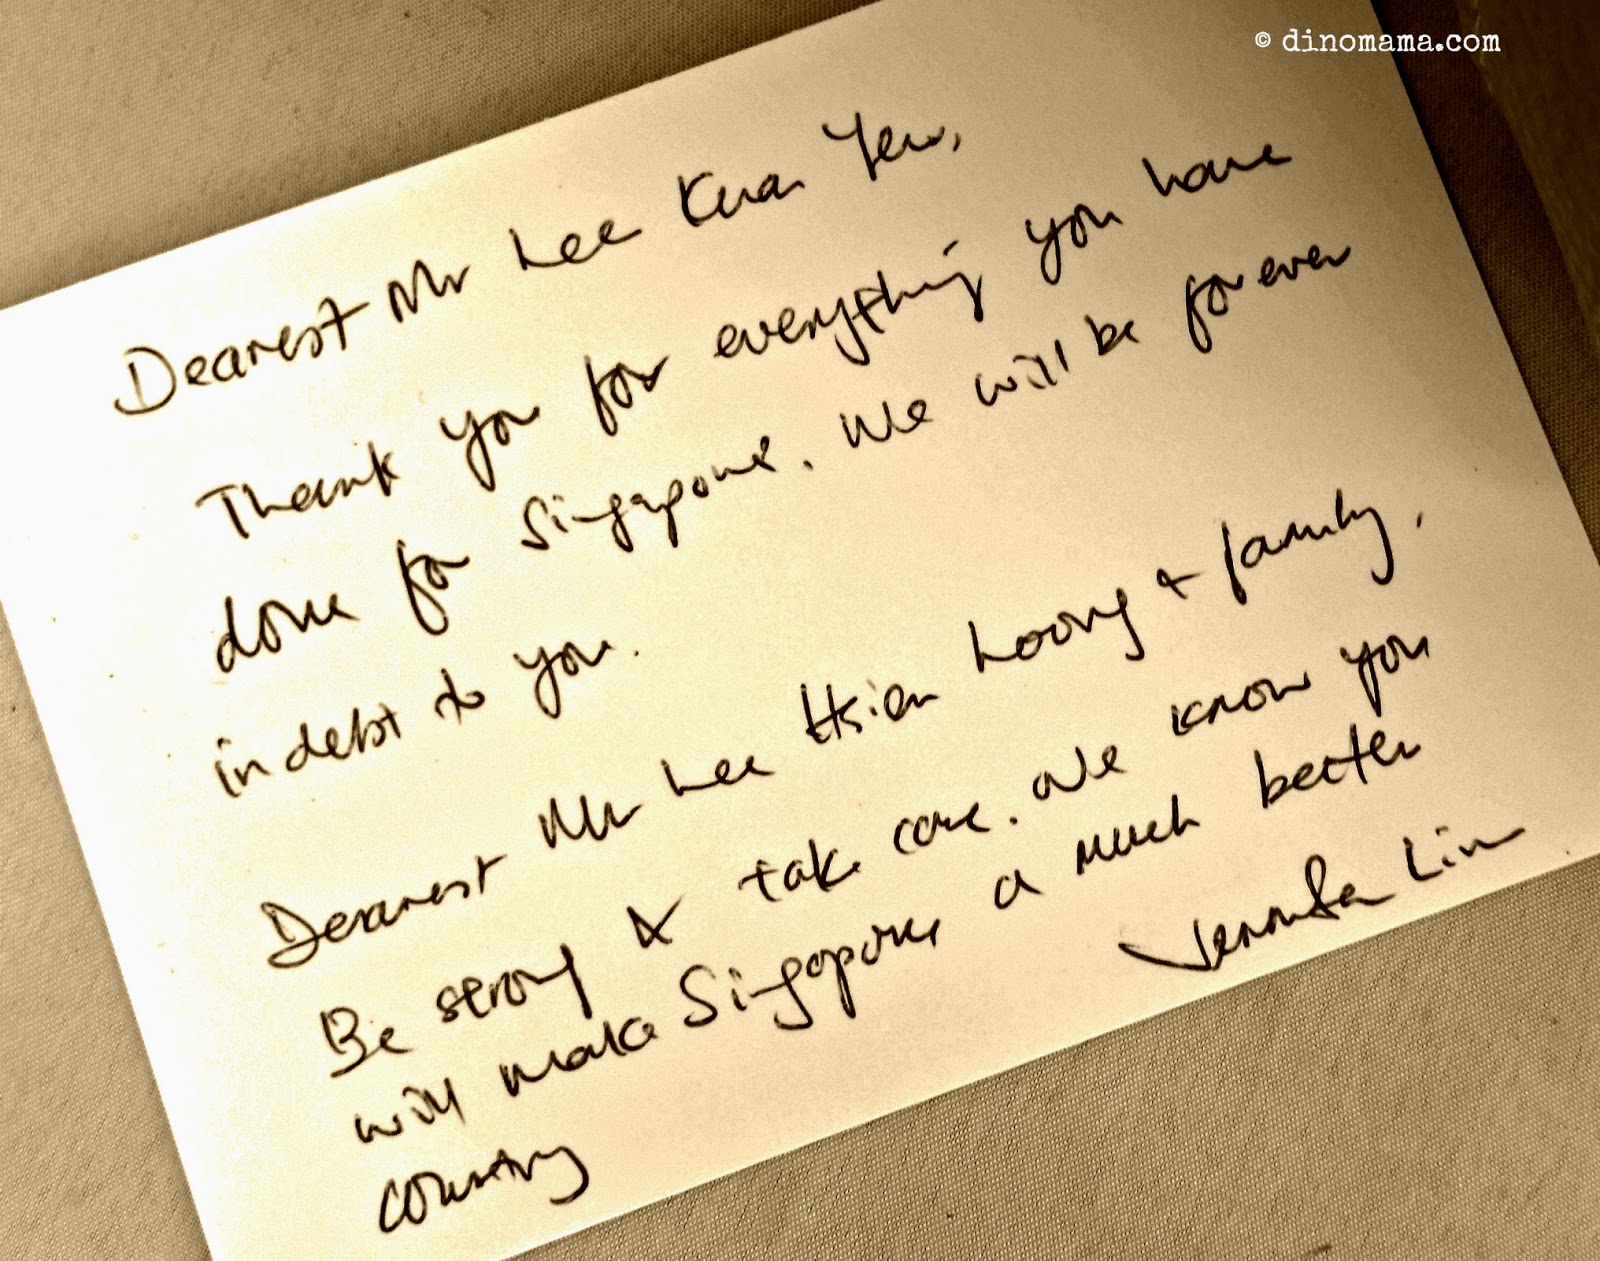 © dinomama.com
Dearest Mr Lee Kuan Yew,
Thank you for everything you have
done for Singapore. We will be forever
in debt to you.
Dearest Mr Lee Hsien Loong & family,
Be strong & take care. We know you
will make Singapore a much better
country
Jennifer Lim